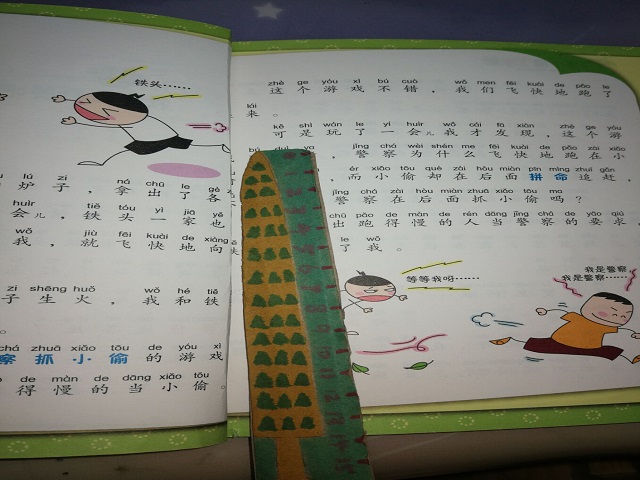 铁头……
lú zi ná chū le gè
炉子，拿出了各
huìr tiě tóu yì jiā yě
会儿，铁头一家也
wǒ jiù fēi kuài de xiàng
我，就飞快地向
zi shēng huǒ wǒ hé tiě
子生火，我和铁
chá zhuā xiǎo tōu de yóu xì
察抓小偷的游戏
de màn de dāng xiǎo tōu
得慢的当小偷
zhè ge yóu xì bú cuò wǒ men fēi kuài de pǎo le
这个游戏不错，我们飞快地跑了
lái
来。
kě shì wán le yí huìr wǒ cái fā xiàn zhè ge yóu
可是玩了一会儿我才发现，这个游
jǐng chá wèi shén me fēi kuài de pǎo zài xiǎo
警察为什么飞快地跑在小
ér xiǎo tōu què zài hòu miàn pīn mìng zhuī gǎn
，而小偷却在后面拼命追赶，
jǐng chá zài hòu miàn zhuā xiǎo tōu ma
警察在后面抓小偷吗？
chū pǎo de màn de rén dāng jǐng chá de yāo qiú
出跑得慢的人当警察的要求，
le wǒ
了我。
等等我呀……
我是警察……
我是警察……